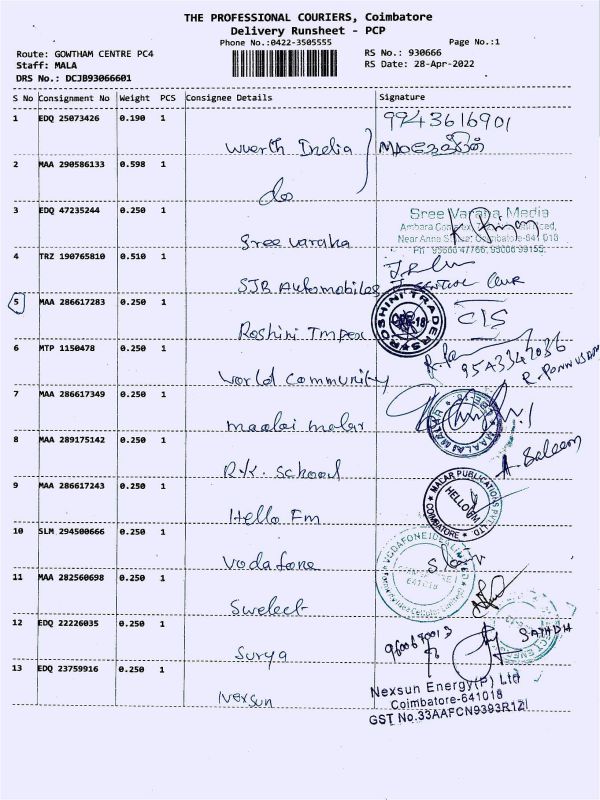 THE PROFESSIONAL COURIERS, Coimbatore
Delivery Runsheet - PCP
Phone No.:0422-3505555 Page No.:1
Route: GOWTHAM CENTRE PC4 RS No.: 930666
Staff: MALA RS Date: 28-Apr-2022
DRS No.: DCJB93066601
S No Consignment No Weight PCS Consignee Details Signature
1 EDQ 25073426 0.190 1 9943616901
Wuerth India
2 MAA 290586133 0.598 1
do
3 EDQ 47235244 0.250 1 Sree Varaha Media
Near Anna Coimbatore-641 018
Ph
Sree Varaha
4 TRZ 190765810 0.510 1
SJB Automobiles
5 MAA 286617283 0.250 1 ROSHINI TRADERS
CBE-18
Roshini Impex
6 MTP 1150478 0.250 1
World Community
7 MAA 286617349 0.250 1
maalai malar MAALAI MALAR
8 MAA 289175142 0.250 1
R.K. School A. Saleem
9 MAA 286617243 0.250 1 MALAR PUBLICATIONS PVT LTD
HELLO FM
COIMBATORE
Hello Fm
10 SLM 294500666 0.250 1 VODAFONE IDEA LIMITED
641018
Vodafone
11 MAA 282560698 0.250 1
Swelect
12 EDQ 22226035 0.250 1
Surya
13 EDQ 23759916 0.250 1
Nexsun Energy(P) Ltd
Coimbatore-641018
GST No.33AAFCN9393R1ZI
Nexsun